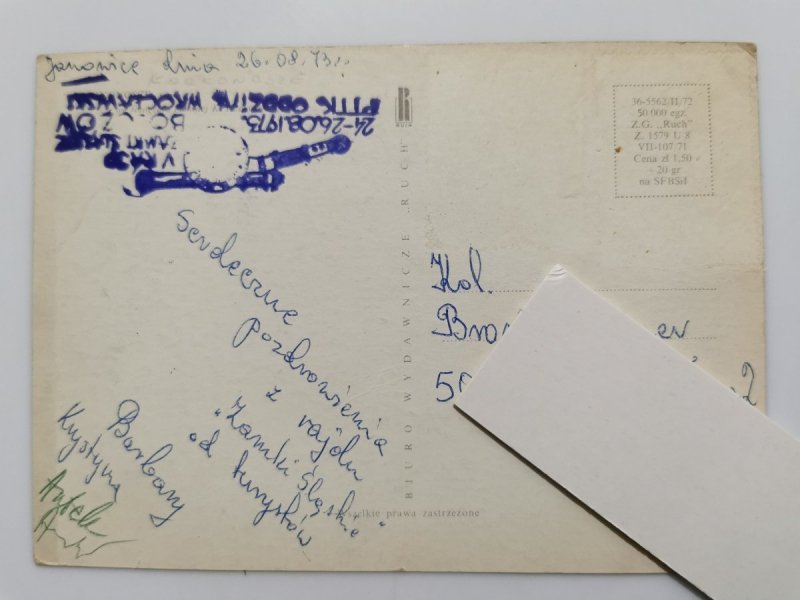 Janowice dnia 26.08.73r.
V RAJD
ZAMKI ŚLĄSKIE
BOLCZÓW
24-26.08.1973.
PTTK ODDZIAŁ WROCŁAWSKI
Serdeczne
Pozdrowienia
z rajdu
"Zamki Śląskie"
od turystów
Barbary
Krystyna
Antek
BIURO WYDAWNICZE „RUCH"
RUCH
36-5562/II/72
50 000 egz.
Z.G. „Ruch"
Z. 1579 U-8
VII-107/71
Cena zł 1,50
+ 20 gr
na SFBSiI
Kol.
wszelkie prawa zastrzeżone